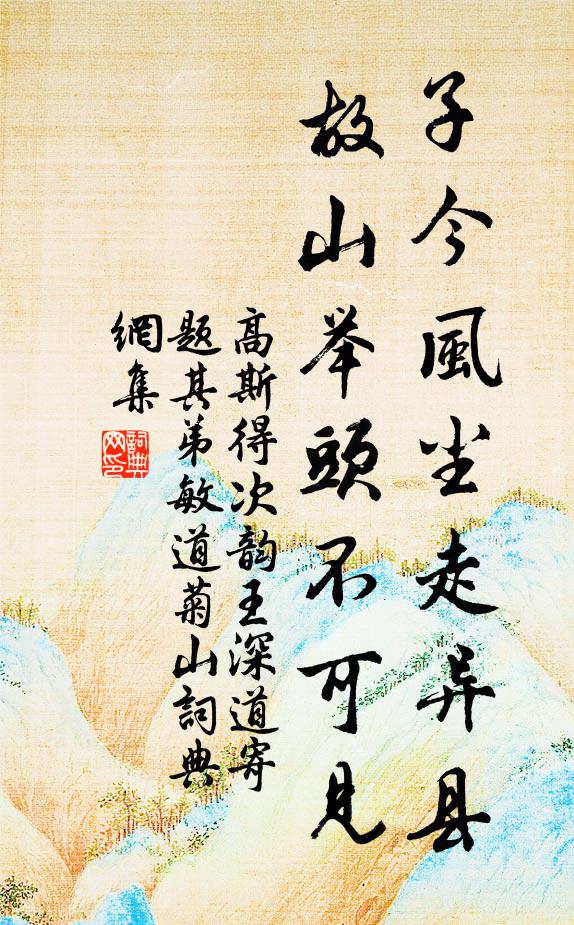 子今風尘走异县
故山举頭不可見
高斯得次韵王深道寄
题其弟敏道菊山詞典
網集
詞典
网印